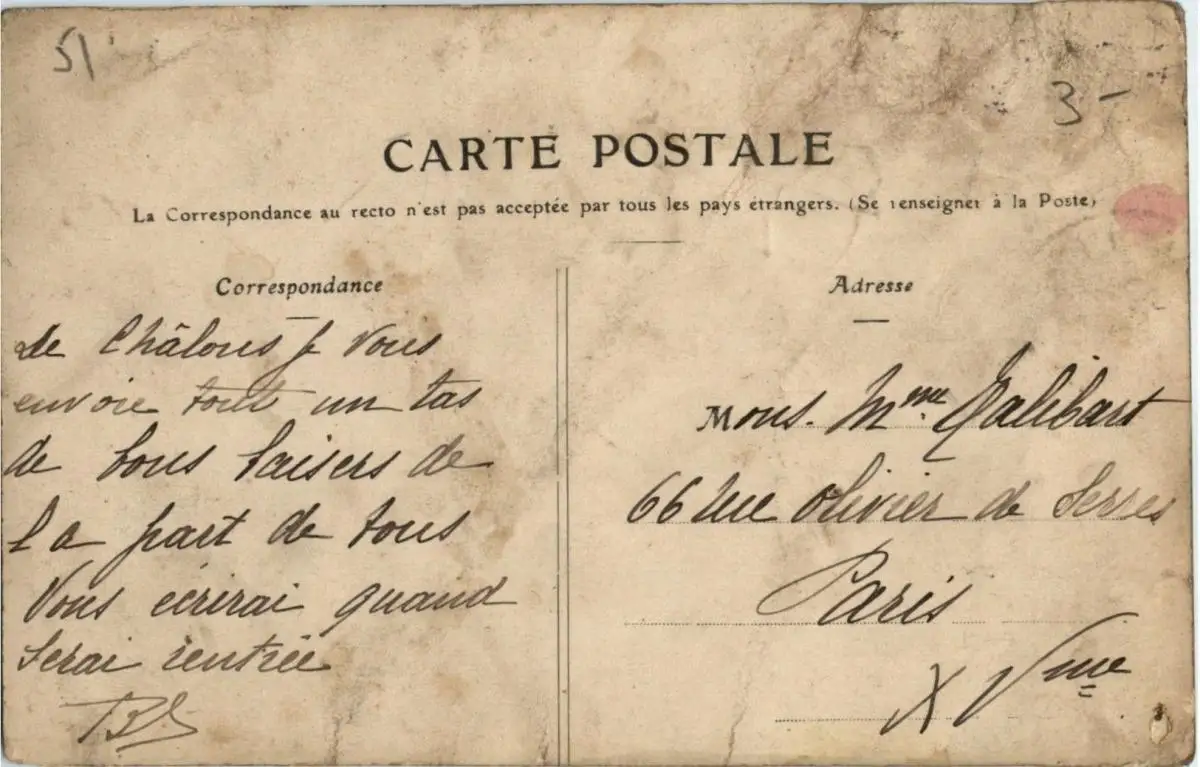 51
3-
CARTE POSTALE
La Correspondance au recto n'est pas acceptée par tous les pays étrangers. (Se renseigner à la Poste)
Correspondance
Adresse
De Châlons je vous
envoie tout un tas
de bons baisers de
la part de tous
Vous écrirai quand
serai rentrée
Mons. Mme Galibart
66 rue Olivier de Serres
Paris
XVme